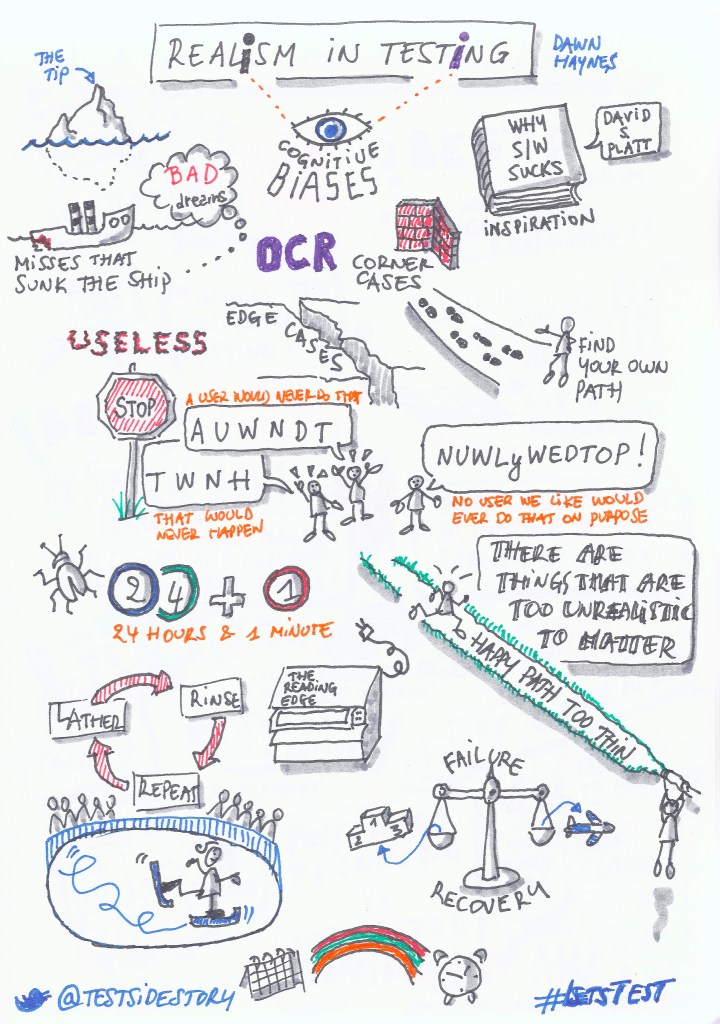 REALiSM IN TESTiNG
DAWN
HAYNES
THE
TIP
COGNITIVE
BIASES
WHY
S/W
SUCKS
DAVID
S.
PLATT
INSPIRATION
BAD
dreams
MISSES THAT
SUNK THE SHIP
OCR
CORNER
CASES
EDGE
CASES
FIND
YOUR OWN
PATH
USELESS
STOP
A USER WOULD NEVER DO THAT
AUWNDT
TWNH
THAT WOULD
NEVER HAPPEN
NUWLyWEDTOP!
NO USER WE LIKE WOULD
EVER DO THAT ON PURPOSE
24 + 1
24 HOURS & 1 MINUTE
THERE ARE
THINGS THAT ARE
TOO UNREALISTIC
TO MATTER
HAPPY PATH TOO THIN
THE
READING
EDGE
LATHER
RINSE
REPEAT
FAILURE
RECOVERY
2 1 3
@TESTSiDESTORY
#LETSTEST